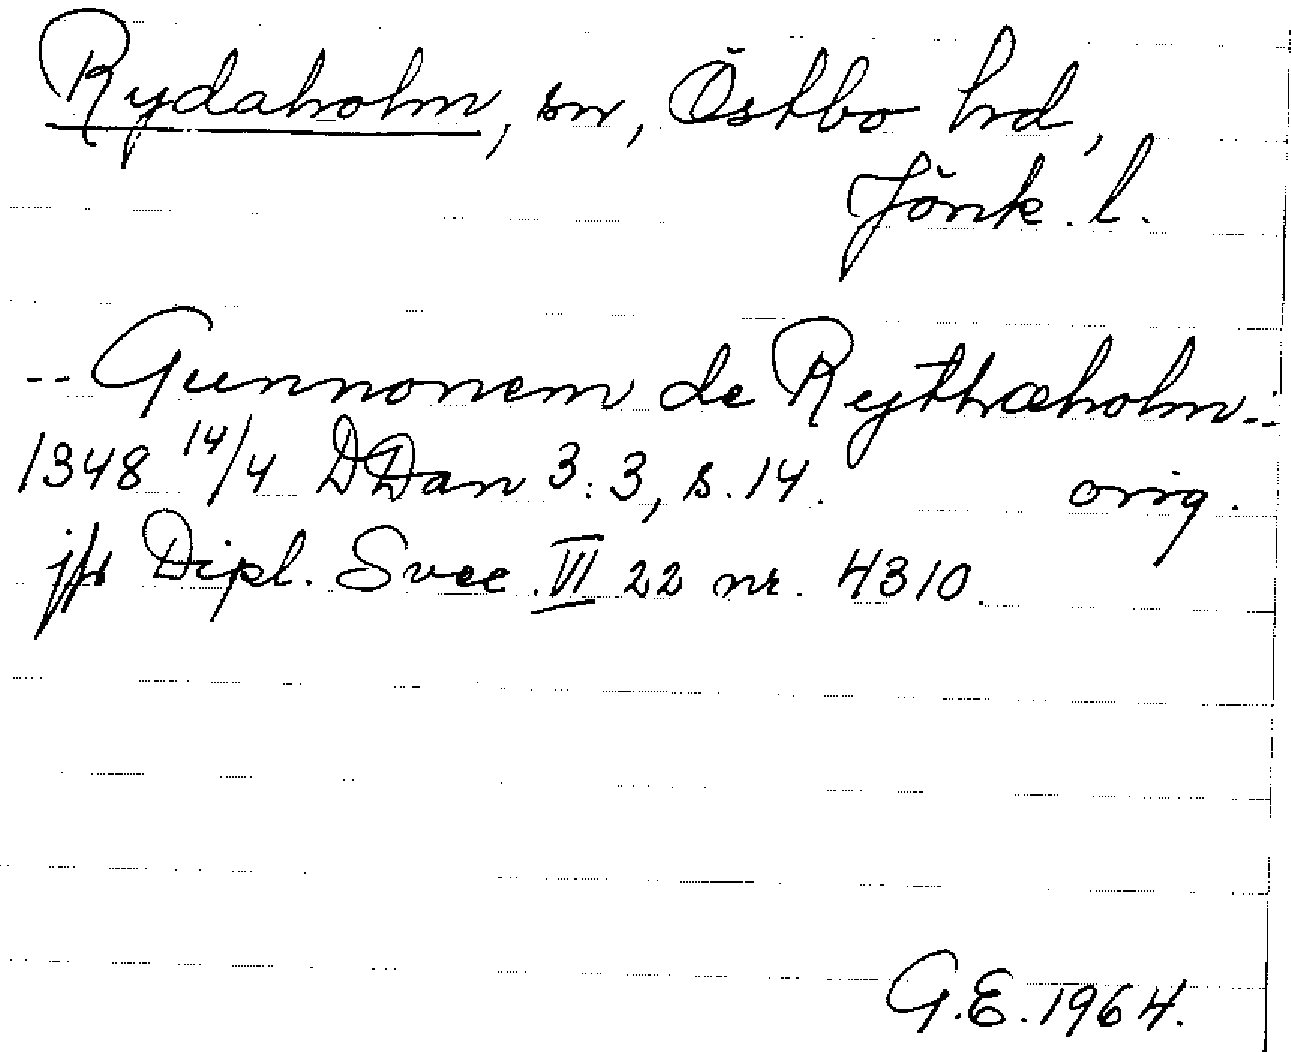 Rydaholm, sn, Östbo hd,
Jönk. l.
-- Gunnonem de Rythæholm --
1348 14/4 DDan 3:3, s. 14. orig.
jfr Dipl. Svec. VI 22 nr. 4310.
G.E. 1964.